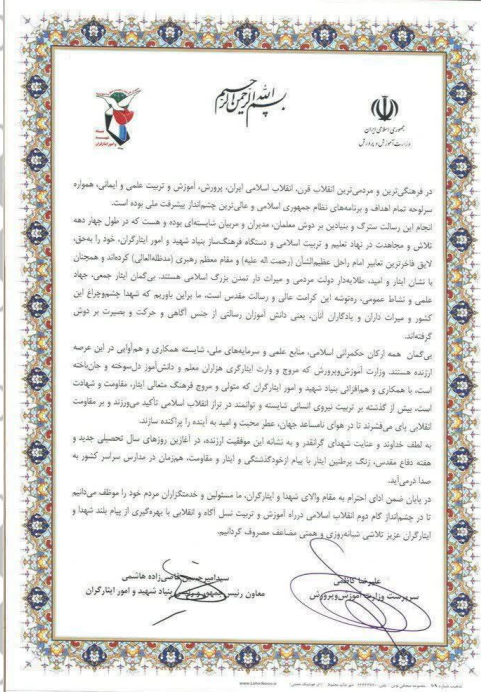 بسم الله الرحمن الرحیم
جمهوری اسلامی ایران
وزارت آموزش و پرورش
بنیاد شهید و امور ایثارگران
در فرهنگی‌ترین و مردمی‌ترین انقلاب قرن، انقلاب اسلامی ایران، پرورش، آموزش و تربیت علمی و ایمانی، همواره
سرلوحه تمام اهداف و برنامه‌های نظام جمهوری اسلامی و عالی‌ترین چشم‌انداز پیشرفت ملی بوده است.
انجام این رسالت سترگ و بنیادین بر دوش معلمان، مدیران و مربیان شایسته‌ای بوده و هست که در طول چهار دهه
تلاش و مجاهدت در نهاد تعلیم و تربیت اسلامی و دستگاه فرهنگ‌ساز بنیاد شهید و امور ایثارگران، خود را به‌حق،
لایق فاخرترین تعابیر امام راحل عظیم‌الشأن (رحمت اله علیه) و مقام معظم رهبری (مدظله‌العالی) کرده‌اند و همچنان
با نشان ایثار و امید، طلایه‌دار دولت مردمی و میراث دار تمدن بزرگ اسلامی هستند. بی‌گمان ایثار جمعی، جهاد
علمی و نشاط عمومی، ره‌توشه این گرامت عالی و رسالت مقدس است، ما براین باوریم که شهدا چشم‌وچراغ این
کشور و میراث داران و یادگاران آنان، یعنی دانش آموزان رسالتی از جنس آگاهی و حرکت و بصیرت بر دوش
گرفته‌اند.
بی‌گمان همه ارکان حکمرانی اسلامی، منابع علمی و سرمایه‌های ملی، شایسته همکاری و هم‌آوایی در این عرصه
ارزنده هستند. وزارت آموزش‌وپرورش که مروج و وارث ایثارگری هزاران معلم و دانش‌آموز دل‌سوخته و جان‌باخته
است، با همکاری و هم‌افزائی بنیاد شهید و امور ایثارگران که متولی و مروج فرهنگ متعالی ایثار، مقاومت و شهادت
است، بیش از گذشته بر تربیت نیروی انسانی شایسته و توانمند در تراز انقلاب اسلامی تأکید می‌ورزند و بر مقاومت
انقلابی پای می‌فشرند تا در هوای نامساعد جهان، عطر محبت و امید به آینده را پراکنده سازند.
به لطف خداوند و عنایت شهدای گرانقدر و به نشانه این موفقیت ارزنده، در آغازین روزهای سال تحصیلی جدید و
هفته دفاع مقدس، زنگ پرطنین ایثار با پیام ازخودگذشتگی و ایثار و مقاومت، هم‌زمان در مدارس سراسر کشور به
صدا درمی‌آید.
در پایان ضمن ادای احترام به مقام والای شهدا و ایثارگران، ما مسئولین و خدمتگزاران مردم خود را موظف می‌دانیم
تا در چشم‌انداز گام دوم انقلاب اسلامی درراه آموزش و تربیت نسل آگاه و انقلابی با بهره‌گیری از پیام بلند شهدا و
ایثارگران عزیز تلاشی شبانه‌روزی و همتی مضاعف مصروف گردانیم.
علیرضا کاظمی
سرپرست وزارت آموزش‌وپرورش
سیدامیرحسین قاضی‌زاده هاشمی
معاون رئیس جمهور و رئیس بنیاد شهید و امور ایثارگران